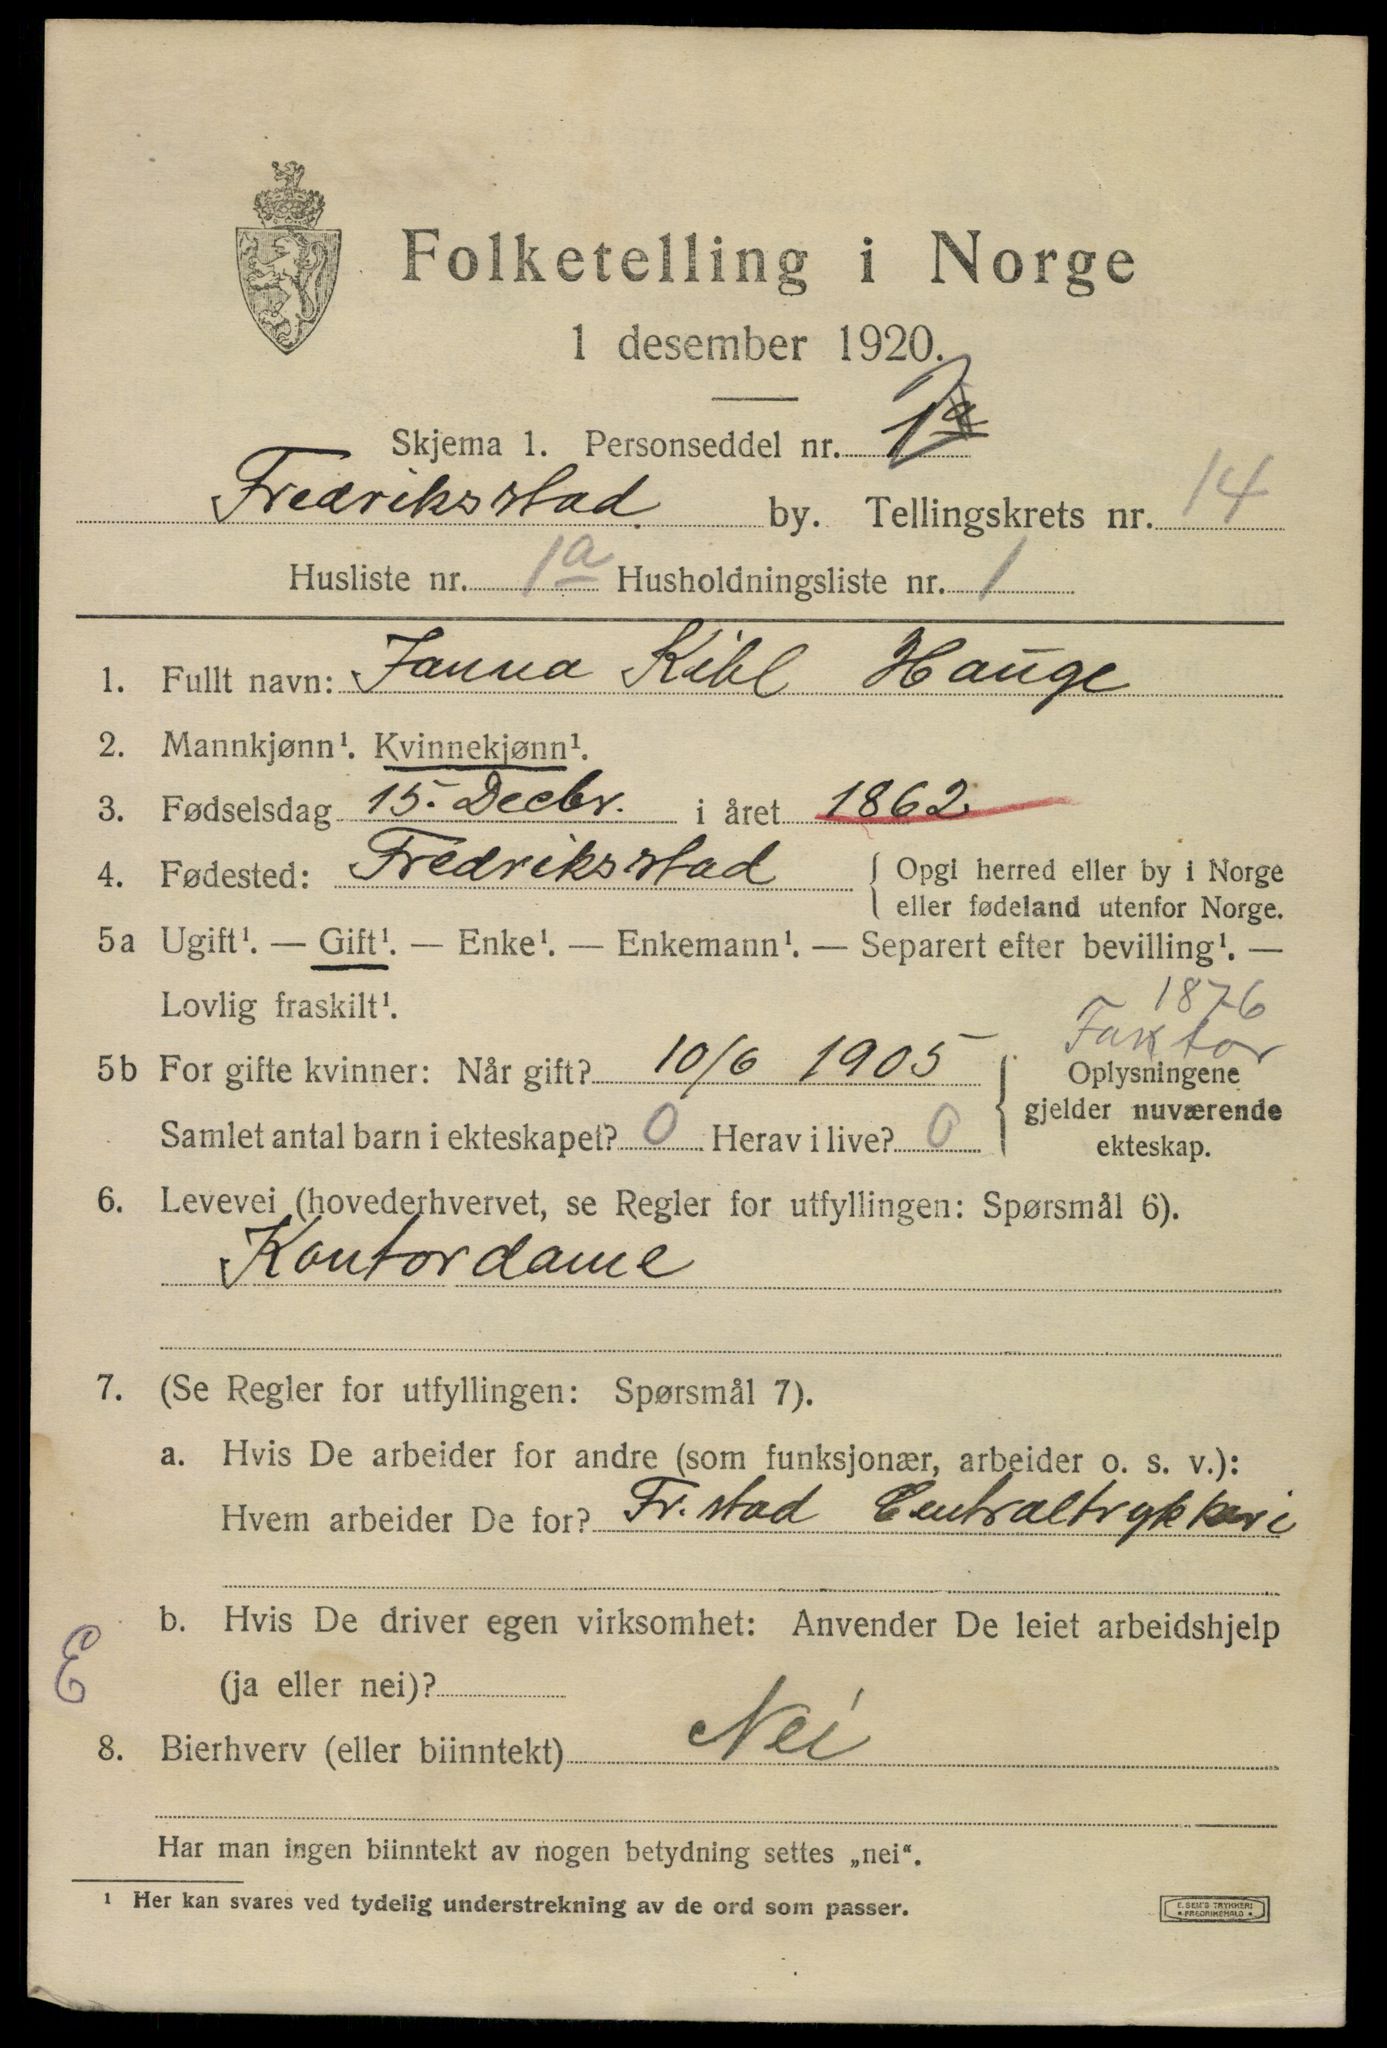 Folketelling i Norge
1 desember 1920.
Skjema 1. Personseddel nr.
Fredriksstad by. Tellingskrets nr. 14
Husliste nr. 1a Husholdningsliste nr. 1
1. Fullt navn: Janna Kihl Hauge
2. Mannkjønn¹. Kvinnekjønn¹.
3. Fødselsdag 15. Decbr. i året 1862.
4. Fødested: Fredriksstad { Opgi herred eller by i Norge
eller fødeland utenfor Norge.
5a Ugift¹. — Gift¹. — Enke¹. — Enkemann¹. — Separert efter bevilling¹. —
Lovlig fraskilt¹.
1876
Faktor
5b For gifte kvinner: Når gift? 10/6 1905 { Oplysningene
gjelder nuværende
Samlet antal barn i ekteskapet? 0 Herav i live? 0
ekteskap.
6. Levevei (hovederhvervet, se Regler for utfyllingen: Spørsmål 6).
Kontordame
7. (Se Regler for utfyllingen: Spørsmål 7).
a. Hvis De arbeider for andre (som funksjonær, arbeider o. s. v.):
Hvem arbeider De for? Fr.stad Centraltrykkeri
b. Hvis De driver egen virksomhet: Anvender De leiet arbeidshjelp
E
(ja eller nei)?
8. Bierhverv (eller biinntekt) Nei
Har man ingen biinntekt av nogen betydning settes „nei“.
¹ Her kan svares ved tydelig understrekning av de ord som passer.
E. SEM'S TRYKKERI
FREDRIKSHALD